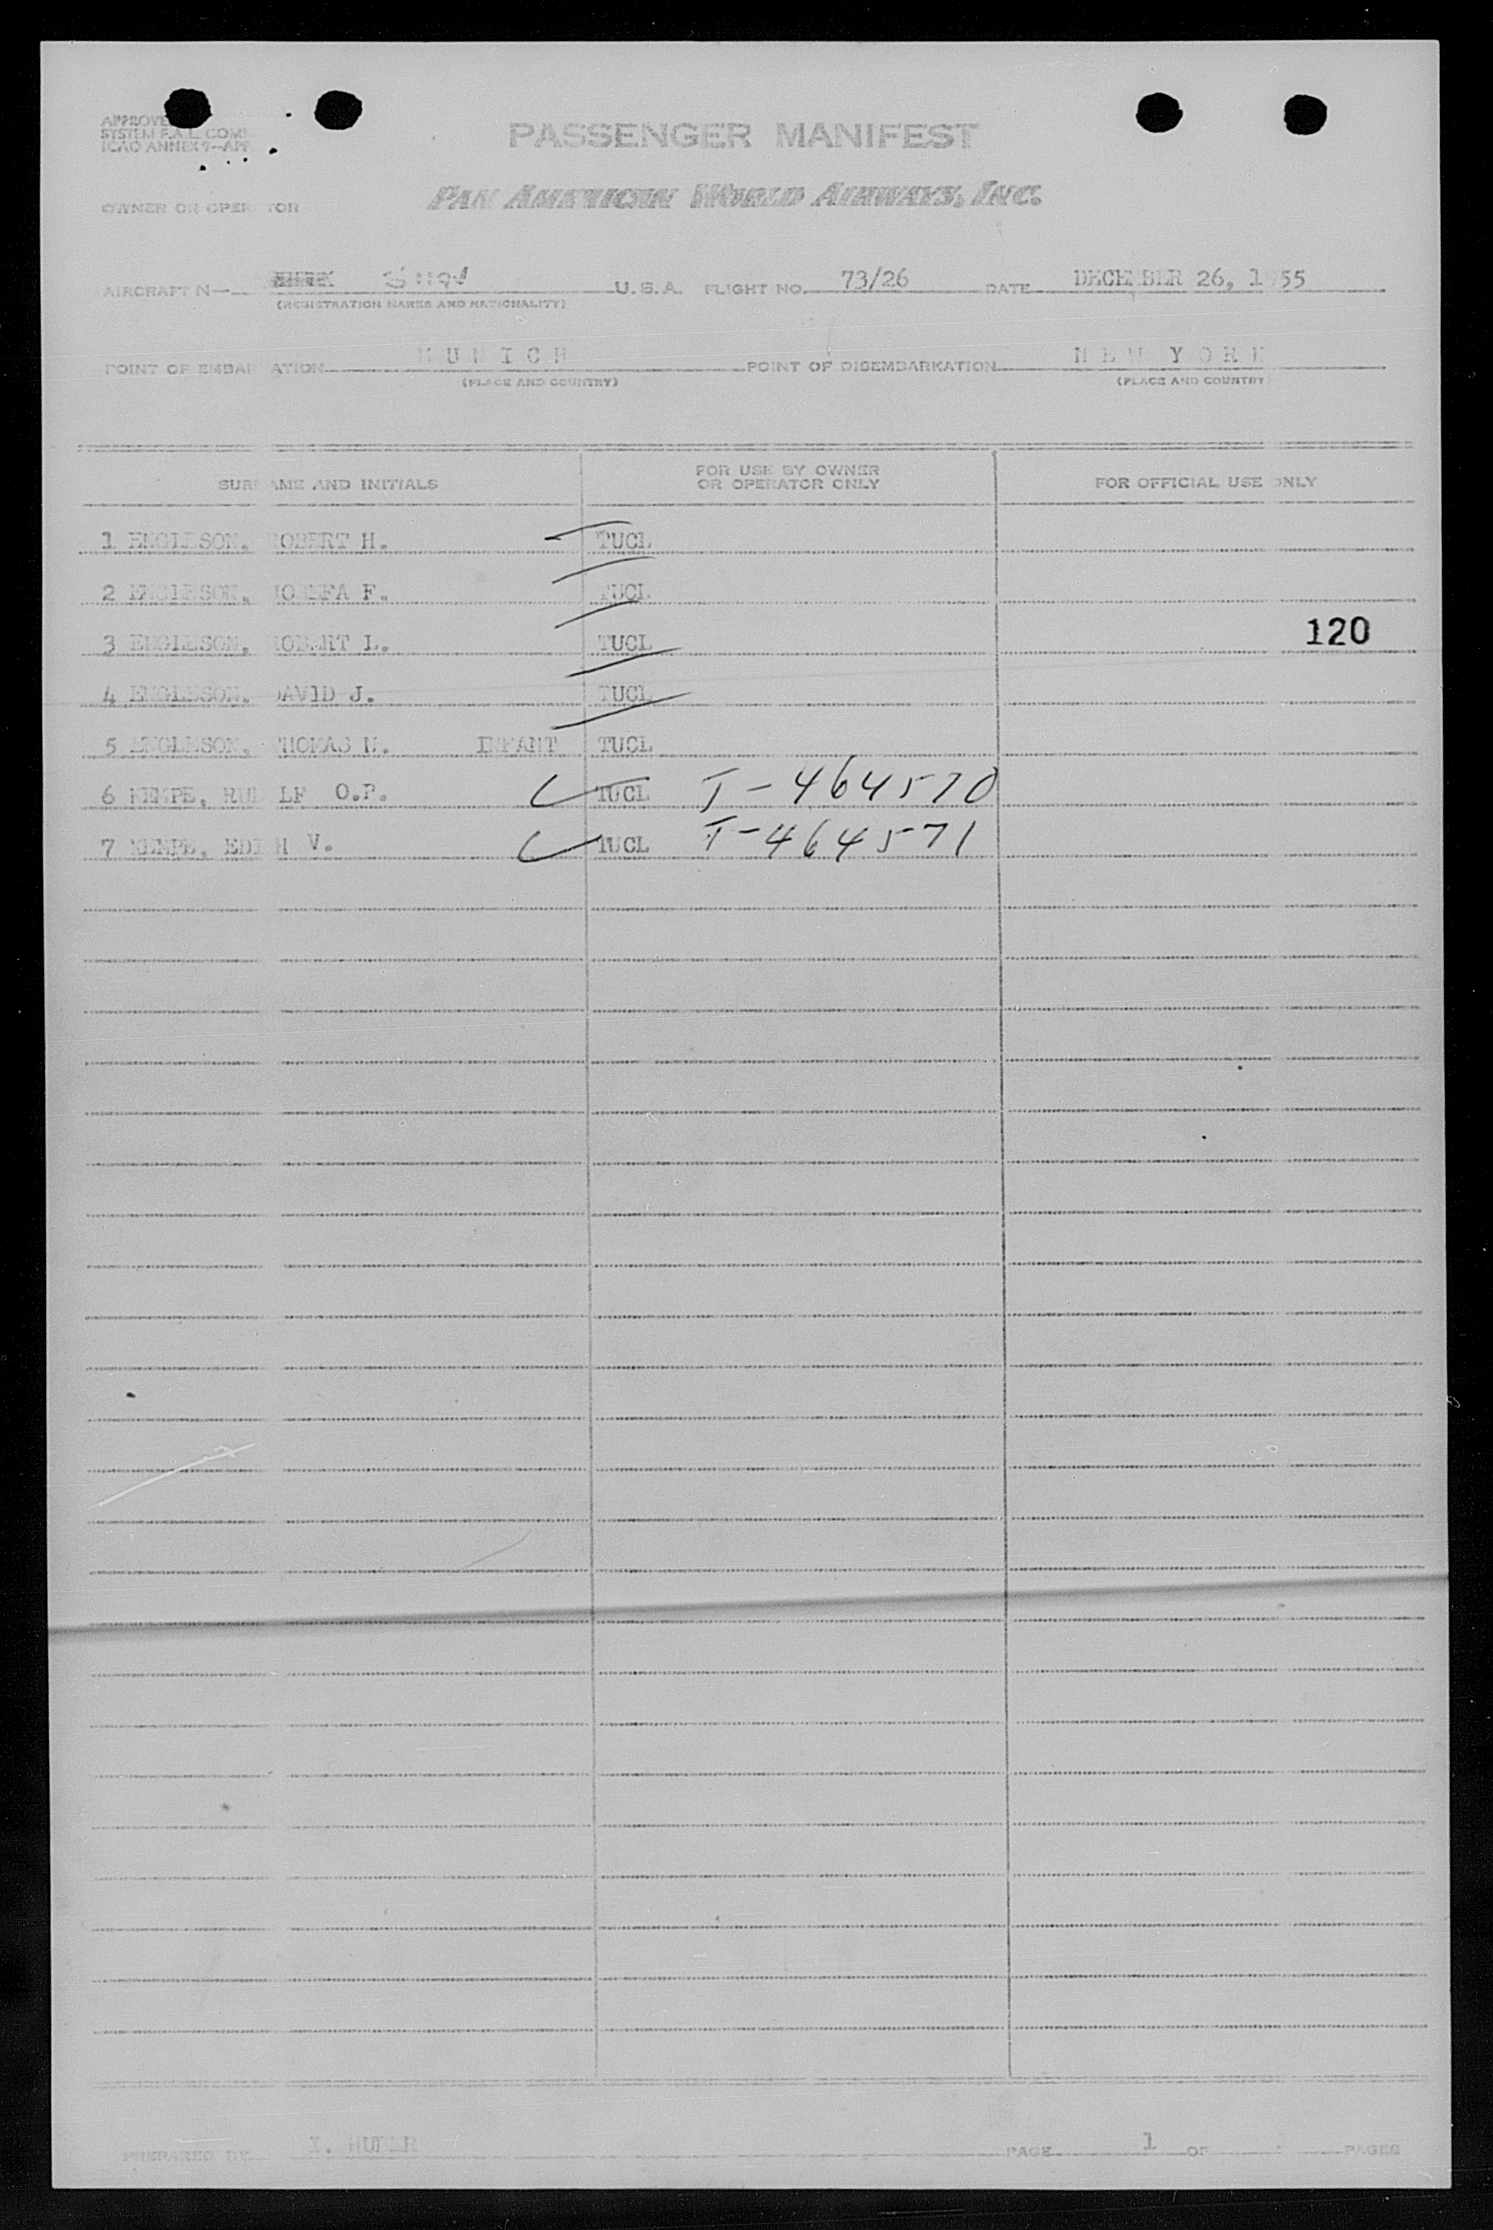 APPROVE
SYSTEM F.A.L. COM
ICAO ANNEX 9—APP
PASSENGER MANIFEST
OWNER OR OPERATOR
PAN AMERICAN WORLD AIRWAYS, INC.
AIRCRAFT N— U.S.A. FLIGHT NO. 73/26 DATE DECEMBER 26, 1955
(REGISTRATION MARKS AND NATIONALITY)
POINT OF EMBARKATION MUNICH POINT OF DISEMBARKATION NEW YORK
(PLACE AND COUNTRY) (PLACE AND COUNTRY
SURNAME AND INITIALS FOR USE BY OWNER OR OPERATOR ONLY FOR OFFICIAL USE ONLY
1 ENGLESON, ROBERT H. TUCL
2 ENGLESON, JOSEFA F. TUCL
3 ENGLESON, ROBERT L. TUCL
120
4 ENGLESON, DAVID J. TUCL
5 ENGLESON, THOMAS N. INFANT TUCL
6 KEMPE, RUDOLF O.P. TUCL T-464570
7 KEMPE, EDITH V. TUCL T-464571
PREPARED BY HUBER PAGE 1 OF PAGES